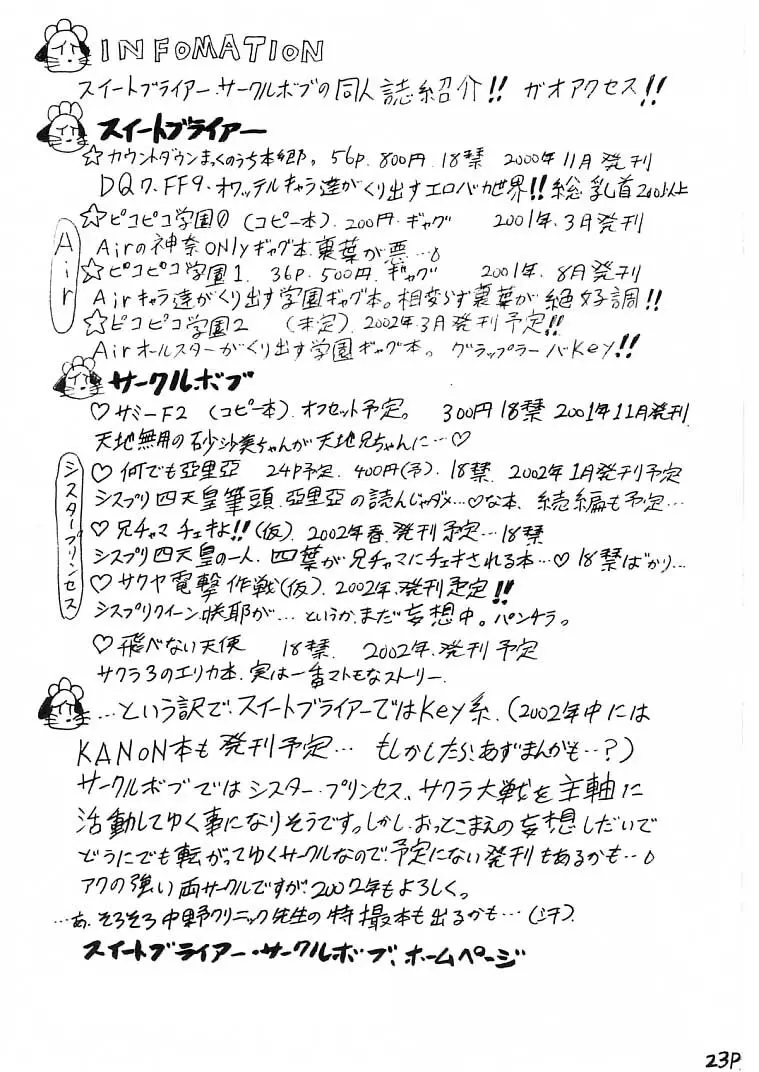 INFOMATION
スイートブライアー・サークルボブの同人誌紹介!! ガオアクセス!!
スイートブライアー
☆カウントダウンまっくのうち本郷。56p. 800円. 18禁 2000年11月発刊
DQ7.FF9.オワッテルキャラ達がくり出すエロバカ世界!!総乳首200以上
Air
☆ピコピコ学園0 (コピー本). 200円.ギャグ 2001年.3月発刊
Airの神奈ONlyギャグ本裏葉が悪…
☆ピコピコ学園1. 36p. 500円. ギャグ 2001年.8月発刊
Airキャラ達がくり出す学園ギャグ本。相変らず裏葉が絶好調!!
☆ピコピコ学園2 (未定). 2002年.3月発刊予定!!
Airオールスターがくり出す学園ギャグ本。グラップラーバKey!!
サークルボブ
♡サミーF2 (コピー本).オフセット予定。 300円 18禁 2001年11月発刊
天地無用の砂沙美ちゃんが天地兄ちゃんに…♡
シスタープリンセス
♡何でも亞里亞 24p予定. 400円(予). 18禁. 2002年1月発刊予定
シスプリ四天皇筆頭.亞里亞の読んじゃダメ…♡な本、続編も予定…
♡兄チャマ チェキよ!!(仮). 2002年春.発刊予定…18禁
シスプリ四天皇の一人.四葉が兄チャマにチェキされる本…♡ 18禁ばかり…
♡サクヤ電撃作戦(仮). 2002年.発刊予定!!
シスプリクイーン咲耶が…というか、まだ妄想中。パンチラ。
♡飛べない天使 18禁 2002年.発刊予定
サクラ3のエリカ本.実は一番マトモなストーリー.
…という訳で、スイートブライアーではKey系.(2002年中には
KANON本も発刊予定… もしかしたら、あずまんがも…?)
サークルボブではシスター・プリンセス、サクラ大戦を主軸に
活動してゆく事になりそうです。しかし、おっとこまえの妄想しだいで
どうにでも転がってゆくサークルなので、予定にない発刊もあるかも…
アクの強い両サークルですが、2002年もよろしく。
…あ、そろそろ中野クリニック先生の特撮本も出るかも…(汗).
スイートブライアー・サークルボブ、ホームページ
23P